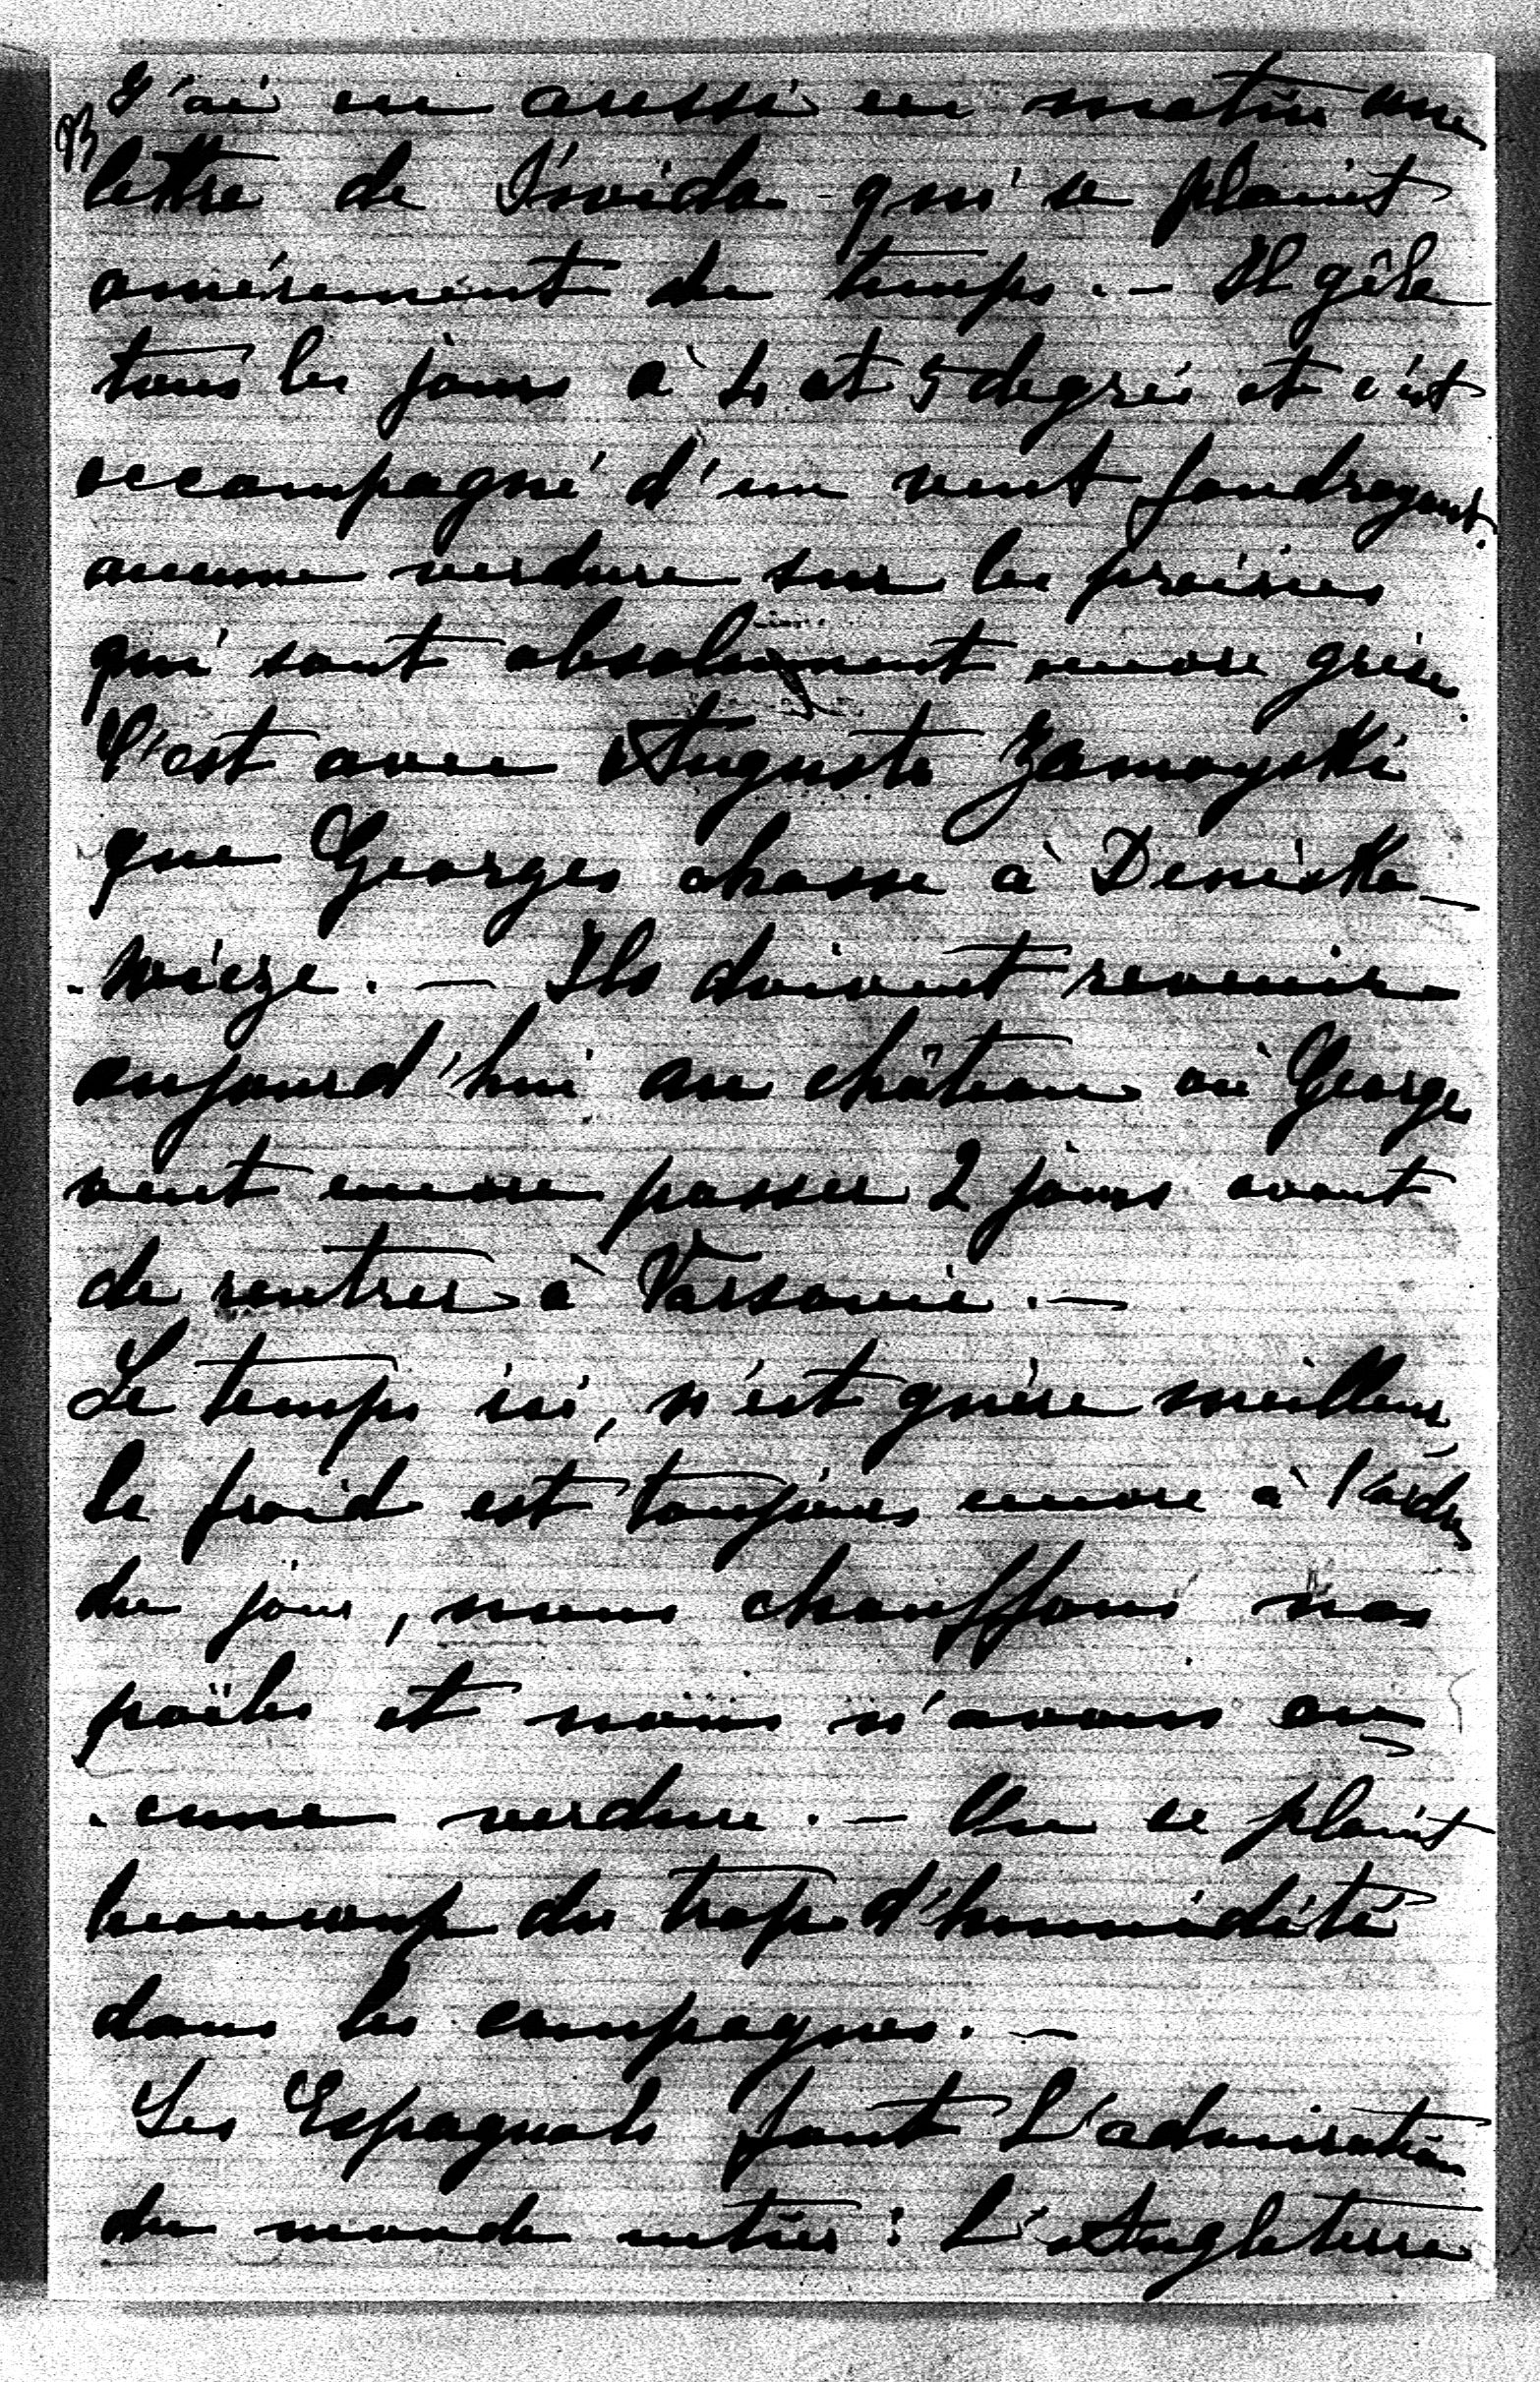 J'ai eu aussi ce matin une
lettre de qui se plaint
amèrement du temps. - Il gêle
tous les jours à 4 et 5 degrés et c'est
accompagné d'un vent foudroyant.
aucune verdure sur les prairies
qui sont absolument encore grises.
C'est avec Auguste Zamoyski
que Georges chasse à Denisko-
-wicze. — Ils doivent revenir
aujourd'hui au château où Georges
veut encore passer 2 jours avant
de rentrer à Varsovie. —
Le temps ici, n'est guère meilleur,
le froid est toujours encore à l'ordre
du jour, nous chauffons nos
poëles et nous n'avons au-
-cune verdure. — On se plaint
beaucoup du trop d'humidité
dans les campagnes. —
Les Espagnols font l'admiration
du monde entier : L'Angleterre